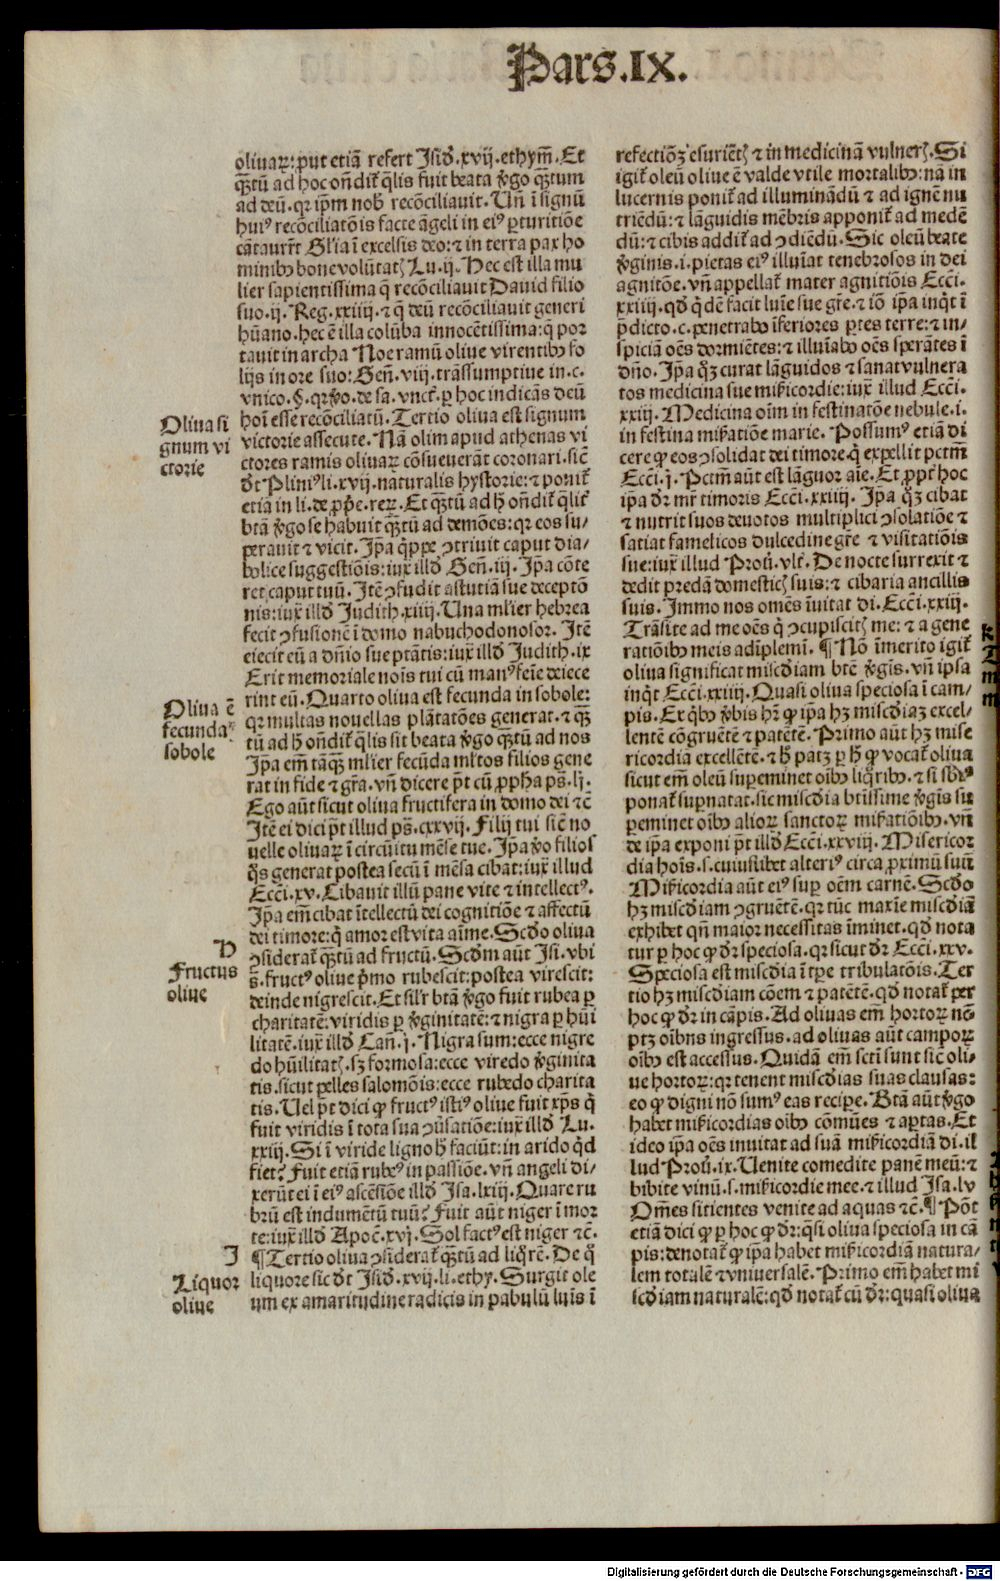 Pars.IX.
oliuaꝝ: ꝓut etiã refert Isid̃.xvij.ethym̃. Et
q̃ꝫtũ ad hoc oñdit᷑ q̃lis fuit beata ꝟgo q̃ꝫtum
ad deũ. qꝛ ip̃m nob̃ recõciliauit. Un̄ ĩ signũ
huiꝰ recõciliatõis facte ãgeli in eiꝰ ꝑturitiõe
cãtaurt̃ Gl̃ia ĩ excelsis deo: ⁊ in terra pax ho
minibꝰ bone volũtatꝭ Lu.ij. Hec est illa mu
lier sapientissima q̃ recõciliauit Dauid filio
suo.ij. Reg.xxiiij. ⁊ q̃ deũ recõciliauit generi
hũano. hec ẽ illa colũba innocẽtissima: q̃ por
tauit in archa Noe ramũ oliue virentibꝰ fo
lijs in ore suo: Gen̄.viij. trãssumptiue in.c.
vnico.§.qꝛꝟo.de sa.vnct̃. ꝑ hoc indicãs deũ
hoĩ esse recõciliatũ. Tertio oliua est signum
victorie assecute. Nã olim apud athenas vi
ctores ramis oliuaꝝ cõsueuerãt coronari. sic̃
dt̃ Pliniꝰ li.xvij. naturalis hystorie: ⁊ ponit᷑
etiã in li. de ꝓp̃e.reꝝ. Et q̃ꝫtũ ad h̃ oñdit᷑ q̃lit᷑
btã ꝟgo se habuit q̃ꝫtũ ad demões: qꝛ eos su/
perauit ⁊ vicit. Ip̃a q̃ppe ꝯtriuit caput dia/
bolice suggestiõis: iux̃ illd̃ Gen̄.iij. Ip̃a cõte
ret caput tuũ. Itẽ ꝯfudit astutiã sue deceptõ
nis: iux̃ illd̃ Judith.xiiij. Una ml̃ier hebrea
fecit ꝯfusionẽ ĩ domo nabuchodonosor. Itẽ
eiecit eũ a dñio sue ptãtis: iux̃ illd̃ Judith.ix
Erit memoriale noĩs tui cũ manꝰ feĩe deiece
rint eũ. Quarto oliua est fecunda in sobole:
qꝛ multas nouellas plãtatões generat. ⁊ q̃ꝫ
tũ ad h̃ oñdit᷑ q̃lis sit beata ꝟgo q̃ꝫtũ ad nos
Ip̃a em̃ tãq̃ꝫ ml̃ier fecũda ml̃tos filios gene
rat in fide ⁊ gr̃a. vn̄ dicere p̃t cũ ꝓpha ps̃.lj.
Ego aũt sicut oliua fructifera in domo dei ⁊c̃
Itẽ ei dici p̃t illud ps̃.cxxvij. Filij tui sic̃ no
uelle oliuaꝝ ĩ circũitu mẽse tue. Ip̃a ꝟo filios
q̃s generat postea secũ ĩ mẽsa cibat: iux̃ illud
Ecci.xv. Cibauit illũ pane vite ⁊ intellectꝰ.
Ip̃a em̃ cibat ĩtellectũ dei cognitiõe ⁊ affectũ
dei timore: q̃ amor est vita aĩme. Scd̃o oliua
ꝯsiderat᷑ q̃ꝫtũ ad fructũ. Scd̃m aũt Isi. vbi
s̃. fructꝰ oliue p̃mo rubescit: postea virescit:
deinde nigrescit. Et sil̃r btã ꝟgo fuit rubea ꝑ
charitatẽ: viridis ꝑ ꝟginitatẽ: ⁊ nigra ꝑ hũi
litatẽ. iux̃ illd̃ Cañ.j. Nigra sum: ecce nigre
do hũilitatꝭ. sꝫ formosa: ecce viredo ꝟginita
tis. sicut pelles salomõis: ecce rubedo charita
tis. Uel p̃t dici ꝙ fructꝰ istiꝰ oliue fuit xp̃s q̃
fuit viridis ĩ tota sua ꝯuersatiõe: iux̃ illd̃ Lu.
xxiij. Si ĩ viride ligno h̃ faciũt: in arido q̃d
fiet? Fuit etiã rubeꝰ in passiõe. vn̄ angeli di/
xerũt ei ĩ eiꝰ ascẽsiõe illd̃ Isa.lxiij. Quare ru
brũ est indumẽtũ tuũ? Fuit aũt niger ĩ mor
te: iux̃ illd̃ Apoc̃.xvj. Sol factꝰ est niger ⁊c̃.
¶ Tertio oliua ꝯsiderat᷑ q̃ꝫtũ ad liq̃rẽ. De q̃
liquore sic dt̃ Isid̃.xvij.li.ethy. Surgit ole
um ex amaritudine radicis in pabulũ luis ĩ
Oliua si
gnum vi
ctorie
Oliua ẽ
fecunda
sobole
Fructus
oliue
I
Liquor
oliue
refectiõꝫ esuriẽtꝭ ⁊ in medicinã vulnerꝭ. Si
igit᷑ oleũ oliue ẽ valde vtile mortalibꝰ: nã in
lucernis ponit᷑ ad illuminãdũ ⁊ ad ignẽ nu
triẽdũ: ⁊ lãguidis mẽbris apponit᷑ ad medẽ
dũ: ⁊ cibis addit᷑ ad ꝯdiẽdũ. Sic oleũ beate
ꝟginis.i. pietas eiꝰ illuĩat tenebrosos in dei
agnitõe. vn̄ appellat᷑ mater agnitiõis Ecci.
xxiiij. qd̃ q̃dẽ facit luĩe sue gr̃e. ⁊ iõ ip̃a inq̃t ĩ
p̃dicto.c. penetrabo ĩferiores ꝑtes terre: ⁊ in-
spiciã oẽs dormiẽtes: ⁊ illuĩabo oẽs sperãtes ĩ
dño. Ip̃a q̃ꝫ curat lãguidos ⁊ sanat vulnera
tos medicina sue mĩcordie: iux̃ illud Ecci.
xxiij. Medicina oĩm in festinatõe nebule.i.
in festina mĩatiõe marie. Possumꝰ etiã di
cere ꝙ eos ꝯsolidat dei timore. q̃ expellit pctm̃
Ecci.j. Pctm̃ aũt est lãguor aĩe. Et ꝓpt̃ hoc
ip̃a dr̃ mr̃ timoris Ecci.xxiiij. Ip̃a q̃ꝫ cibat
⁊ nutrit suos deuotos multiplici ꝯsolatiõe ⁊
satiat famelicos dulcedine gr̃e ⁊ visitatiõis
sue: iux̃ illud Prou̾.vlt̾. De nocte surrexit ⁊
dedit predã domesticꝭ suis: ⁊ cibaria ancillis
suis. Immo nos omẽs ĩuitat di. Ecci.xxiij.
Trãsite ad me oẽs q̃ ꝯcupiscitꝭ me: ⁊ a gene
ratiõibꝰ meis adĩplemĩ. ¶ Nõ ĩmerito igit᷑
oliua significat miscd̃iam btẽ ꝟgĩs. vn̄ ipsa
inq̃t Ecci.xxiiij. Quasi oliua speciosa ĩ cam/
pis. Ex q̃bꝰ ꝟbis hr̃ ꝙ ip̃a hꝫ miscd̃iaꝫ excel-
lentẽ cõgruẽtẽ ⁊ patẽtẽ. Primo aũt hꝫ mise
ricordia excellẽtẽ. ⁊ h̃ patꝫ ꝑ h̃ ꝙ vocat᷑ oliua
sicut em̃ oleũ supeminet oĩbꝰ liq̃ribꝰ. ⁊ si sbꝰ
ponat᷑ suꝑnatat. sic miscd̃ia btĩssime ꝟgĩs su
ꝑeminet oĩbꝰ alioꝝ sanctoꝝ mĩatiõibꝰ. vn̄
de ip̃a exponi p̃t illd̃ Ecci.xxviij. Misericor
dia hoĩs.s.cuiuslibet alteriꝰ circa ꝓximũ suũ
Mĩcordia aũt eiꝰ suꝑ oẽm carnẽ. Scd̃o
hꝫ miscd̃iam ꝯgruẽtẽ. qꝛ tũc maxĩe miscd̃iã
exhibet qñ maior necessitas ĩminet. qd̃ nota
tur ꝑ hoc ꝙ dr̃ speciosa. qꝛ sicut dr̃ Ecci.xxv.
Speciosa est miscd̃ia ĩ tpe tribulatõis. Ter
tio hꝫ miscd̃iam cõem ⁊ patẽtẽ. qd̃ notat᷑ per
hoc ꝙ dr̃ in cãpis. Ad oliuas em̃ hortoꝝ nõ
ptꝫ oĩbus ingressus. ad oliuas aũt campoꝝ
oĩbꝰ est accessus. Quidã em̃ sctĩ sunt sic̃ oli/
ue hortoꝝ: qꝛ tenent miscd̃ias suas clausas:
eo ꝙ digni nõ sumꝰ eas recipe. Btã aũt ꝟgo
habet mĩcordias oĩbꝰ cõmũes ⁊ aptas. Et
ideo ip̃a oẽs inuitat ad suã mĩcordiã di. il
lud Prou̾.ix. Uenite comedite panẽ meũ: ⁊
bibite vinũ.s. mĩcordie mee. ⁊ illud Isa.lv
Om̃es sitientes venite ad aquas ⁊c̃. ¶ Põt
etiã dici ꝙ ꝑ hoc ꝙ dr̃: q̃si oliua speciosa in cã
pis: denotat᷑ ꝙ ip̃a habet mĩcordiã natura/
lem totalẽ ⁊ vniuersalẽ. Primo em̃ habet mi
scd̃iam naturalẽ: qd̃ notat᷑ cũ dr̃: quasi oliua
Digitalisierung gefördert durch die Deutsche Forschungsgemeinschaft - DFG